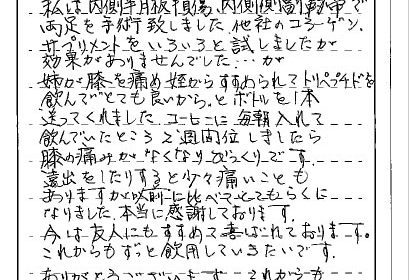 私は内側半月板損傷、内側側副靭帯で
両足を手術致しました。他社のコラーゲン、
サプリメントをいろいろと試しましたが
効果がありませんでした…が
姉が膝を痛め姪からすすめられてトリペプチドを
飲んでとても良いから、とボトルを1本
送ってくれました。コーヒーに毎朝入れて
飲んでいたところ2週間位しましたら
膝の痛みがなくなりびっくりです。
遠出をしたりすると少々痛いことも
ありますが以前に比べてとてもらくに
なりました。本当に感謝しております。
今は友人にもすすめて喜ばれております。
これからもずっと飲用していきたいです。
ありがとうございます。これからも